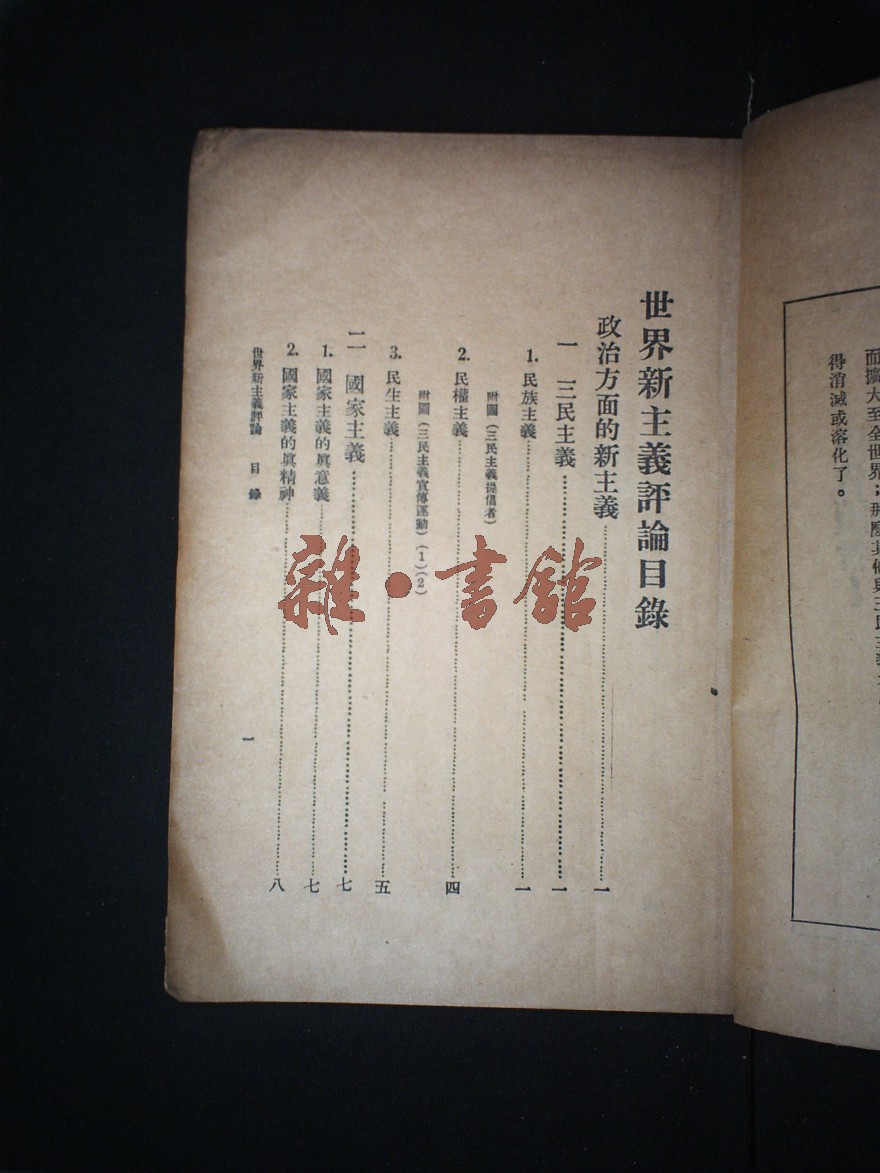 而擴大至全世界；
得消滅或溶化了。
世界新主義評論目錄
政治方面的新主義……一
一 三民主義……一
1. 民族主義……一
附圖（三民主義提倡者）
2. 民權主義……四
附圖（三民主義宣傳運動）（1）（2）
3. 民生主義……五
二 國家主義……七
1. 國家主義的眞意義……七
2. 國家主義的眞精神……八
世界新主義評論 目錄
一
雜·書館